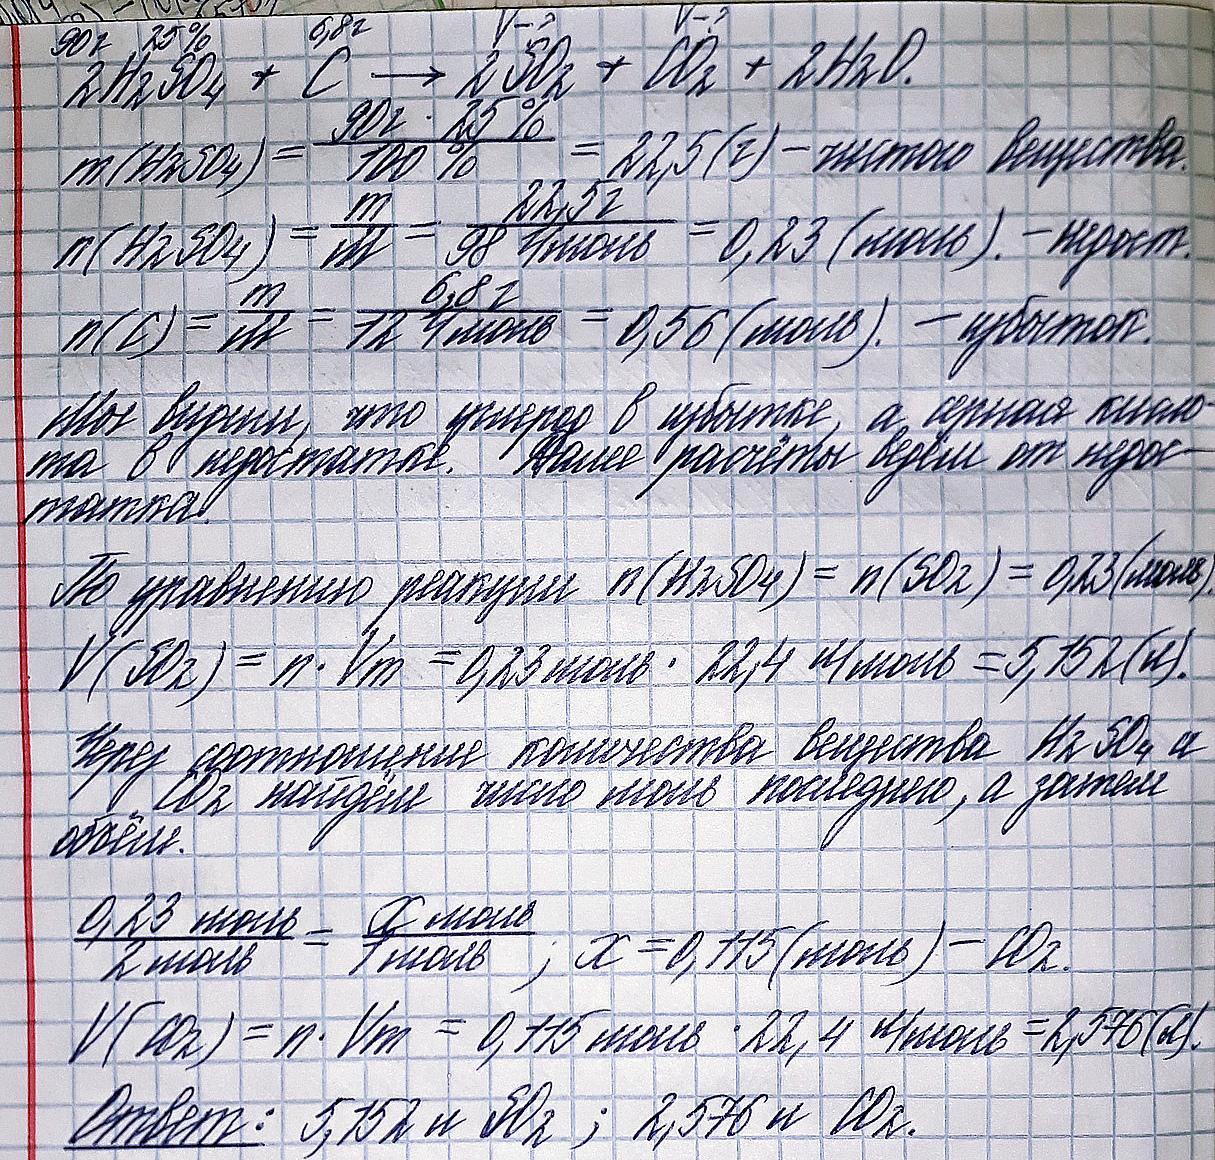 90г 25% 6,8г V-? V-?
2H₂SO₄ + C → 2SO₂ + CO₂ + 2H₂O.
m(H₂SO₄) = 90г · 25% / 100% = 22,5(г) – чистого вещества.
n(H₂SO₄) = m/M = 22,5г / 98 г/моль = 0,23 (моль). – недост.
n(C) = m/M = 6,8г / 12 г/моль = 0,56 (моль). – избыток.
Мы видим, что углерод в избытке, а серная кисло-
та в недостатке. Далее расчёты ведём от недос-
татка.
По уравнению реакции n(H₂SO₄) = n(SO₂) = 0,23(моль).
V(SO₂) = n · Vm = 0,23 моль · 22,4 л/моль = 5,152(л).
Через соотношение количества вещества H₂SO₄ и
CO₂ найдём число моль последнего, а затем
объём.
0,23 моль / 2 моль = x моль / 1 моль ; x = 0,115(моль) – CO₂.
V(CO₂) = n · Vm = 0,115 моль · 22,4 л/моль = 2,576(л).
Ответ: 5,152 л SO₂ ; 2,576 л CO₂.